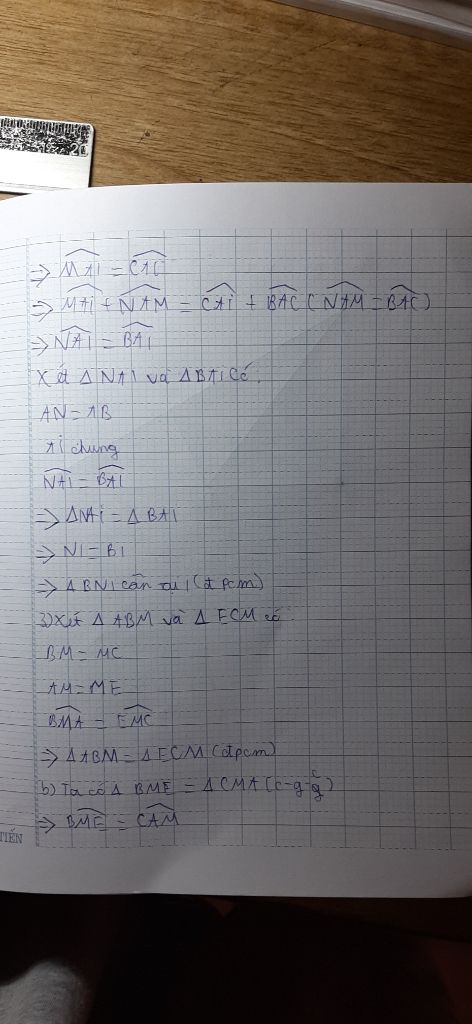 20
⇒ MAI^ = CAC^
⇒ MAi^ + NAM^ = CAi^ + BAC^ (NAM^ = BAC^)
⇒ NAI^ = BAI^
Xét Δ NAI và ΔBAI có.
AN = AB
Ai chung
NAI^ = BAI^
⇒ ΔNAi = Δ BAI
⇒ NI = BI
⇒ Δ BNI cân tại I (đpcm)
3) Xét Δ ABM và Δ ECM có.
BM = MC
AM = ME
BMA^ = EMC^
⇒ ΔABM = ΔECM (đpcm)
b) Ta có Δ BME = ΔCMA (c-g-c)
⇒ BME^ = CAM^
TIẾN